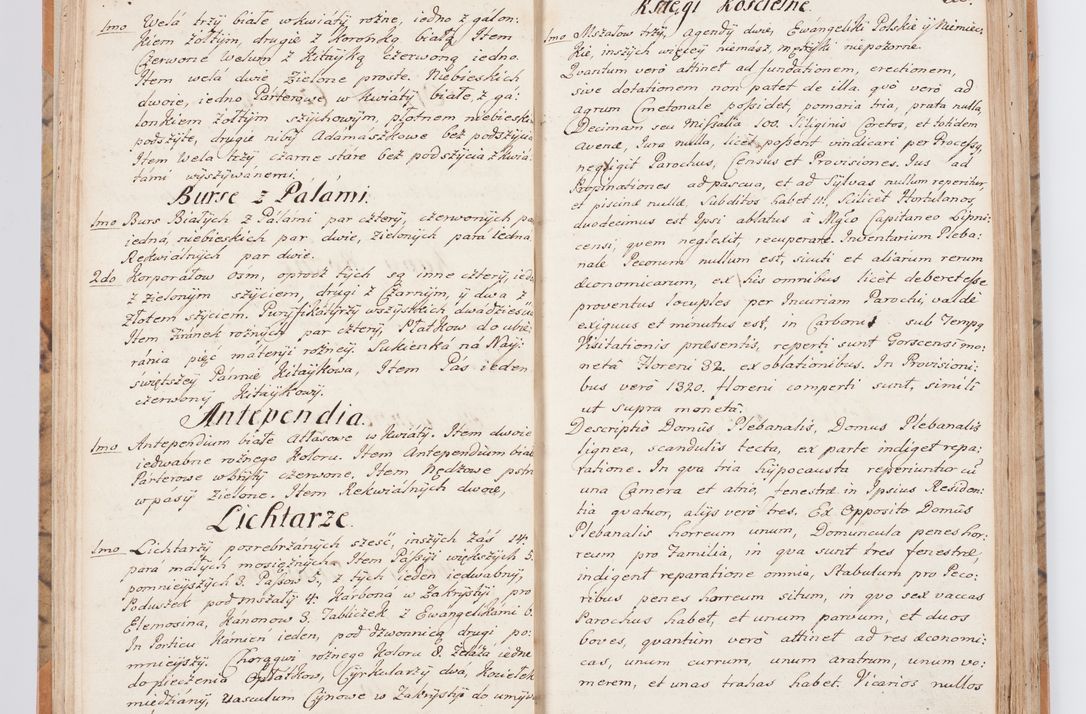 1mo Welá trzÿ białe w kwiátÿ rożne, iedno z gálon:
kiem żołtÿm, drugie z koronką białą Item
Czerwone Welum z Kitaÿką czerwoną iedno.
Item wela dwie Zielone proste. Niebieskich
dwoie, iedno Párterowe w kwiátÿ białe, z gá:
lonkiem żołtÿm szÿchowÿm, płotnem niebieskim
podszÿte, drugie nibÿ Adamaszkowe bez podszÿcia
Item Wela trzÿ czarne stáre bez podszÿcia z kwiá:
támi wÿszÿwanemi.
Burse z Pálámi.
1mo Burs Białÿch z Pálámi par czterÿ, czerwonÿch pa
iedná, niebieskich par dwie, Zielonÿch pará iedna,
Rekwiálnÿch par dwie.
2do Korporałow osm, oprocz tÿch są inne czterÿ, ied
z zielonÿm szÿciem, drugi z Czarnÿm, ÿ dwa z
Złotem szÿciem. Purÿfikátÿrzÿ wszÿstkich dwadziescia
Item Firánek rożnÿch par czterÿ, Płatkow do ubie:
ránia pięc máterÿi rożneÿ. Sukienká na Naÿ:
swiętszeÿ Pánnie Kitaÿkowa, Item Pás ieden
czerwonÿ Kitaÿkowÿ.
Antependia.
1mo Antependium białe Atłásowe w kwiátÿ. Item dwoie
iedwabne rożnego Koloru. Item Antependium białe
Párterowe w brÿtÿ czerwone, Item
w pasÿ Zielone. Item Rekwiálnÿch dwoie,
Lichtarze.
1mo Lichtarzÿ posrebrzánÿch szesć, inszÿch záś 14.
pará małÿch mosiężnÿch Item Pássÿi większÿch 5.
pomnieÿszÿch 3. Passow 5, z tÿch ieden iedwabnÿ,
Poduszek pod mszałÿ 4. Karboná w Zakrÿstÿi pro
Elemosina, Kanonow 3. Tabliczek z Ewangelikámi 6.
In Porticu Kámień ieden, pod dzwonnicą drugi po:
mnieÿszÿ. Chorągwi rożnego Koloru 8. Żelaza iedne
do pieczenia Opłátkow, Cÿrkularzÿ dwá, Kociełek
miedziánÿ, Vasculum Cÿnowe w Zakrÿstÿi do umÿw
Księgi Koscielne.
1mo Mszałow trzÿ, Agendÿ dwie, Ewangeliki Polskie ÿ Niemiec:
kie, inszÿch więceÿ niemasz, metrÿki niepozorne.
Qvantum verò attinet ad fundationem, erectionem,
sive dotationem non patet de illa. qvò verò ad
agrum Cmetonale possidet, pomaria tria, prata nulla,
Decimam seu Missalia 100. Siliginis Coretos, et totidem
Avenæ, Iura nulla, licèt possent vindicari per Processÿ,
negligit Parochus, Census et Provisiones. Ius ad
Propinationes ad pascua, et ad Sÿlvas nullum reperitur
et piscinæ nullæ, Subditos habet 11. Scilicet Hortulanos,
duodecimus est Ipsi ablatus á Mgło Capitaneo Lipni:
censi, qvem neglexit, recuperare. Inventarium Pleba:
nale Pecorum nullum est, sicuti et aliarum rerum
œconomicarum, ex his omnibus licèt deberet esse
proventus locuples per Incuriam Parochi, valdè
exiguus et minutus est, in Carbona sub Tempq
Visitationis præsentis, reperti sunt Gorscensi mo:
netâ Floreni 32. ex oblationibus. In Provisioni:
bus verò 1320. floreni comperti sunt, simili
ut supra monetâ.
Descriptio Domûs Plebanalis, Domus Plebanalis
lignea, scandulis tecta, ex parte indiget repa:
ratione. In qva tria hÿpocausta reperiuntur cũ
una Camera et atrio, fenestræ in Ipsius Residen:
tia qvatuor, alÿs verò tres. Ex Opposito Domûs
Plebanalis horreum unum, Domuncula penes hor:
reum pro Familia, in qva sunt tres fenestræ,
indigent reparatione omnia, Stabulum pro Peco:
ribus penes horreum situm, in qvo sex vaccas
Parochus habet, et unum parvum, et duos
boves, qvantum verò attinet ad res œconomi:
cas, unum currum, unum aratrum, unum vo:
merem, et unas trahas habet. Vicarios nullos